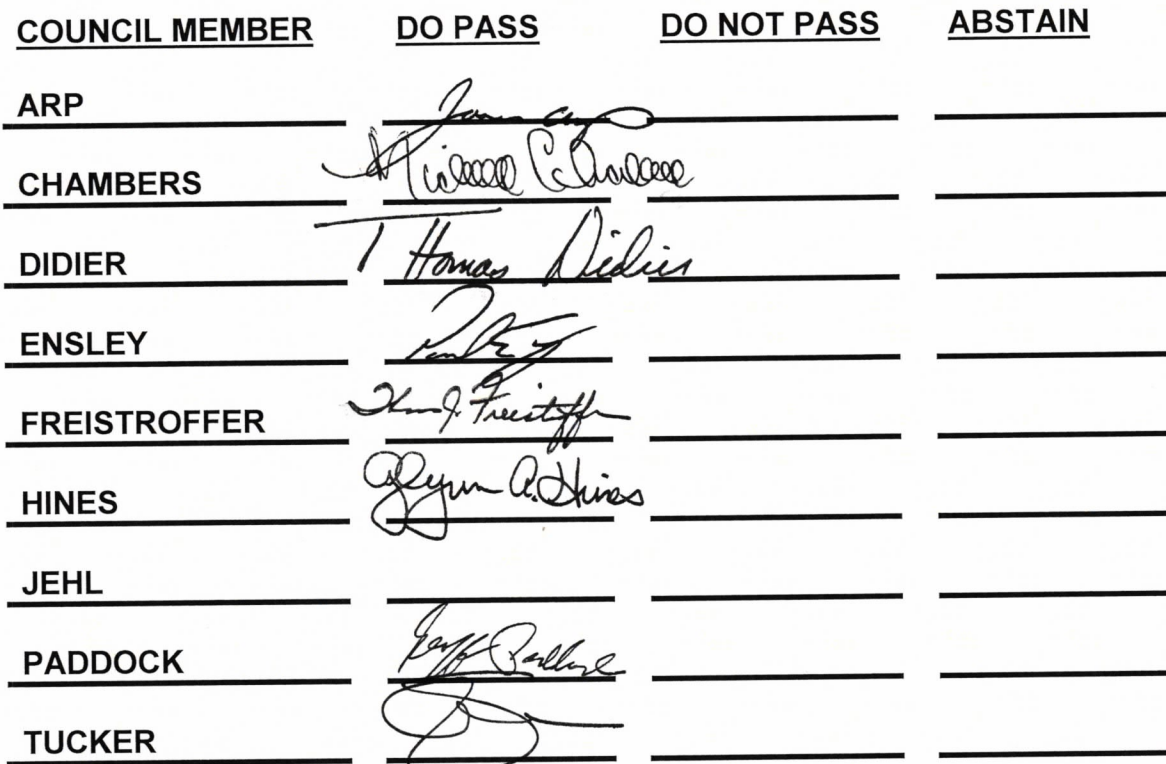 COUNCIL MEMBER DO PASS DO NOT PASS ABSTAIN
ARP
CHAMBERS
DIDIER Thomas Didier
ENSLEY
FREISTROFFER Freistroffer
HINES Glynn A. Hines
JEHL
PADDOCK Geoff Paddock
TUCKER